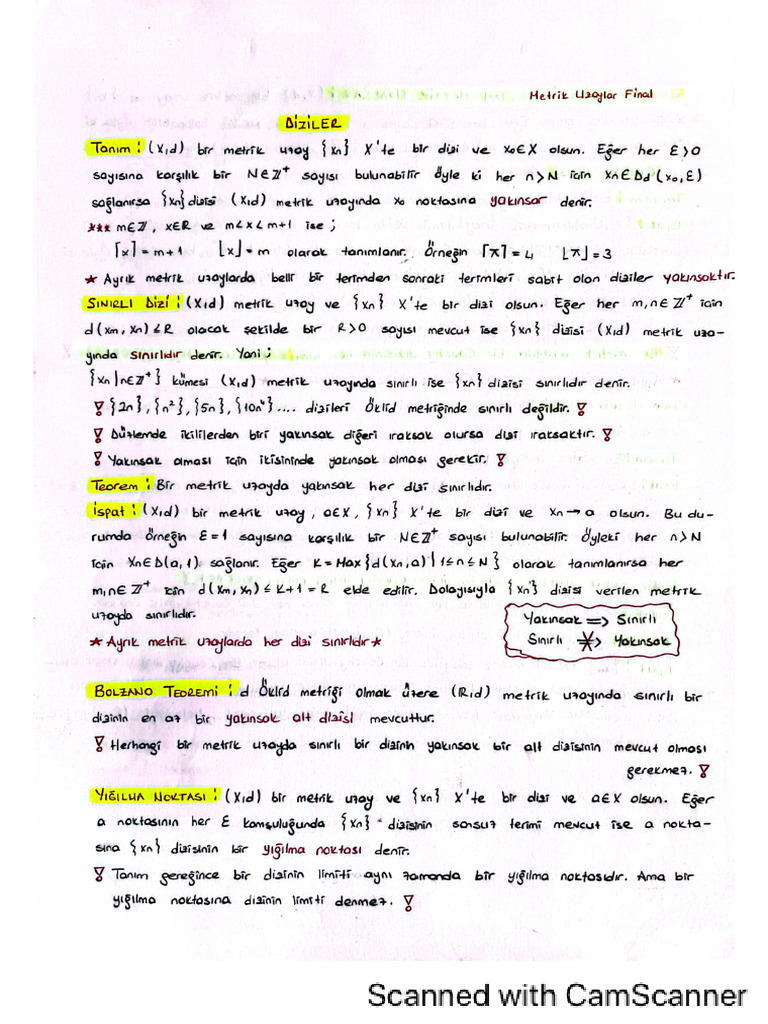 Metrik Uzaylar Final
DİZİLER
Tanım : (X,d) bir metrik uzay {xn} X'te bir dizi ve x0∈X olsun. Eğer her ε>0
sayısına karşılık bir N∈Z⁺ sayısı bulunabilir öyle ki her n>N için xn∈Dd(x0,ε)
sağlanırsa {xn} dizisi (X,d) metrik uzayında x0 noktasına yakınsar denir.
*** m∈Z, x∈R ve m<x<m+1 ise ;
⌈x⌉=m+1 ⌊x⌋=m olarak tanımlanır. Örneğin ⌈π⌉=4 ⌊π⌋=3
* Ayrık metrik uzaylarda belli bir terimden sonraki terimleri sabit olan diziler yakınsaktır.
SINIRLI Dizi : (X,d) metrik uzay ve {xn} X'te bir dizi olsun. Eğer her m,n∈Z⁺ için
d(xm,xn)≤R olacak şekilde bir R>0 sayısı mevcut ise {xn} dizisi (X,d) metrik uza-
yında sınırlıdır denir. Yani ;
{xn|n∈Z⁺} kümesi (X,d) metrik uzayında sınırlı ise {xn} dizisi sınırlıdır denir.
! {2n}, {n²}, {5n}, {10n⁴} .... dizileri Öklid metriğinde sınırlı değildir. !
! Düzlemde ikililerden biri yakınsak diğeri ıraksak olursa dizi ıraksaktır. !
! Yakınsak olması için ikisininde yakınsak olması gerekir. !
Teorem : Bir metrik uzayda yakınsak her dizi sınırlıdır.
İspat : (X,d) bir metrik uzay, a∈X, {xn} X'te bir dizi ve xn→a olsun. Bu du-
rumda örneğin ε=1 sayısına karşılık bir N∈Z⁺ sayısı bulunabilir. Öyleki her n>N
için xn∈D(a,1) sağlanır. Eğer K=Max{d(xn,a)|1≤n≤N} olarak tanımlanırsa her
m,n∈Z⁺ için d(xm,xn)≤K+1=R elde edilir. Dolayısıyla {xn} dizisi verilen metrik
uzayda sınırlıdır.
Yakınsak => Sınırlı
Sınırlı ≠> Yakınsak
* Ayrık metrik uzaylarda her dizi sınırlıdır *
BOLZANO TEOREMİ : d Öklid metriği olmak üzere (R,d) metrik uzayında sınırlı bir
dizinin en az bir yakınsak alt dizisi mevcuttur.
! Herhangi bir metrik uzayda sınırlı bir dizinin yakınsak bir alt dizisinin mevcut olması
gerekmez. !
YIĞILMA NOKTASI : (X,d) bir metrik uzay ve {xn} X'te bir dizi ve a∈X olsun. Eğer
a noktasının her ε komşuluğunda {xn} dizisinin sonsuz terimi mevcut ise a nokta-
sına {xn} dizisinin bir yığılma noktası denir.
! Tanım gereğince bir dizinin limiti aynı zamanda bir yığılma noktasıdır. Ama bir
yığılma noktasına dizinin limiti denmez. !
Scanned with CamScanner